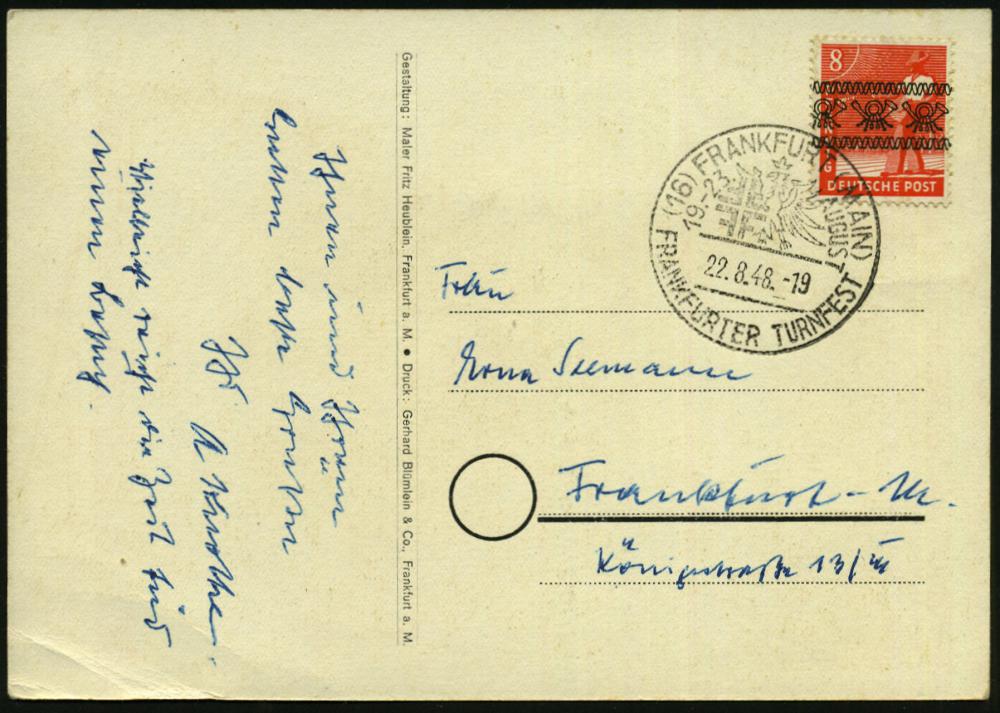 Ihnen und Ihrem
lieben
Ihr
Vielleicht reicht die Zeit für
einen Besuch.
Gestaltung: Maler Fritz Heublein, Frankfurt a. M. ● Druck: Gerhard Blümlein & Co., Frankfurt a. M.
8
DEUTSCHE POST
(16) FRANKFURT (MAIN)
19.-23. AUGUST
22.8.48.-19
FRANKFURTER TURNFEST
Frau
Erna Seemann
Frankfurt-M.
Königstraße 13/III